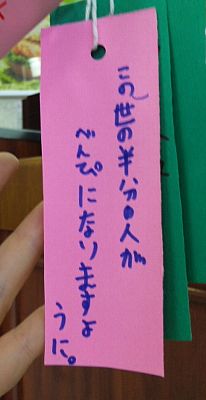 この世の半分の人が
べんぴになりますよ
うに。